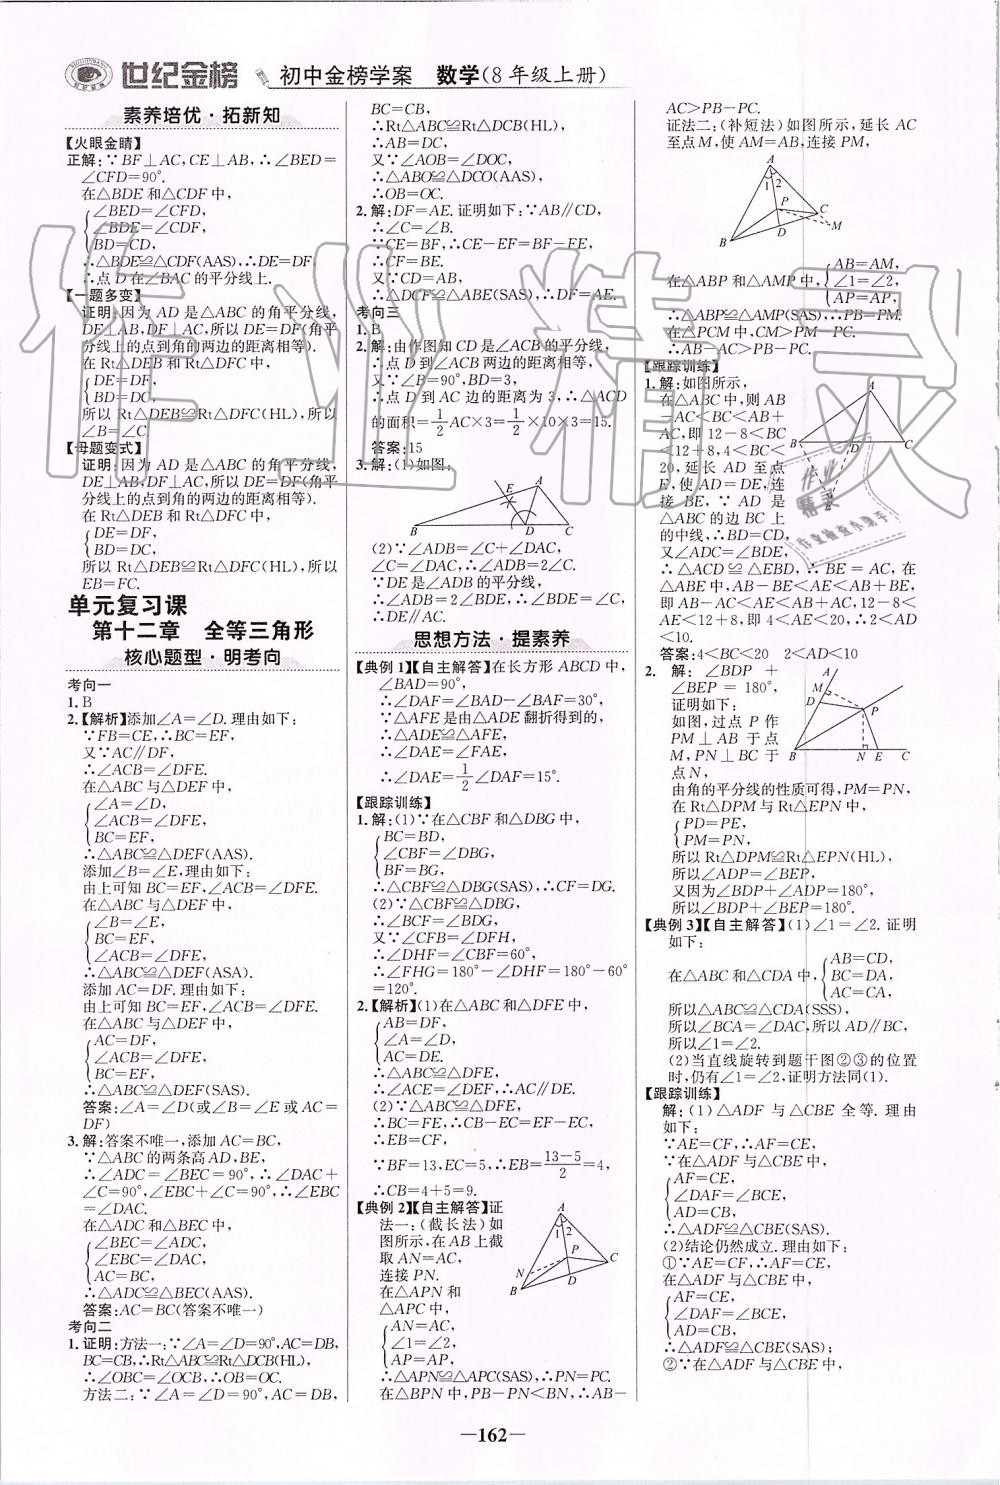 世纪金榜 初中金榜学案 数学(8年级上册)
素养培优·拓新知
【火眼金睛】
正解:∵BF⊥AC,CE⊥AB,∴∠BED=
∠CFD=90°.
在△BDE和△CDF中,
∠BED=∠CFD,
∠BDE=∠CDF,
BD=CD,
∴△BDE≌△CDF(AAS),∴DE=DF,
∴点D在∠BAC的平分线上.
【一题多变】
证明:因为AD是△ABC的角平分线,
DE⊥AB,DF⊥AC,所以DE=DF(角平
分线上的点到角的两边的距离相等).
在Rt△DEB和Rt△DFC中,
DE=DF,
BD=DC,
所以Rt△DEB≌Rt△DFC(HL),所以
∠B=∠C.
【母题变式】
证明:因为AD是△ABC的角平分线,
DE⊥AB,DF⊥AC,所以DE=DF(角平
分线上的点到角的两边的距离相等).
在Rt△DEB和Rt△DFC中,
DE=DF,
BD=DC,
所以Rt△DEB≌Rt△DFC(HL),所以
EB=FC.
单元复习课
第十二章 全等三角形
核心题型·明考向
考向一
1.B
2.【解析】添加∠A=∠D.理由如下:
∵FB=CE,∴BC=EF,
又∵AC∥DF,
∴∠ACB=∠DFE.
在△ABC与△DEF中,
∠A=∠D,
∠ACB=∠DFE,
BC=EF,
∴△ABC≌△DEF(AAS).
添加∠B=∠E.理由如下:
由上可知BC=EF,∠ACB=∠DFE.
在△ABC与△DEF中,
∠B=∠E,
BC=EF,
∠ACB=∠DFE,
∴△ABC≌△DEF(ASA).
添加AC=DF.理由如下:
由上可知BC=EF,∠ACB=∠DFE.
在△ABC与△DEF中,
AC=DF,
∠ACB=∠DFE,
BC=EF,
∴△ABC≌△DEF(SAS).
答案:∠A=∠D(或∠B=∠E或AC=
DF)
3.解:答案不唯一,添加AC=BC,
∵△ABC的两条高AD,BE,
∴∠ADC=∠BEC=90°,∴∠DAC+
∠C=90°,∠EBC+∠C=90°,∴∠EBC
=∠DAC.
在△ADC和△BEC中,
∠BEC=∠ADC,
∠EBC=∠DAC,
AC=BC,
∴△ADC≌△BEC(AAS).
答案:AC=BC(答案不唯一)
考向二
1.证明:方法一:∵∠A=∠D=90°,AC=DB,
BC=CB,∴Rt△ABC≌Rt△DCB(HL),
∴∠OBC=∠OCB,∴OB=OC.
方法二:∵∠A=∠D=90°,AC=DB,
BC=CB,
∴Rt△ABC≌Rt△DCB(HL),
∴AB=DC,
又∵∠AOB=∠DOC,
∴△ABO≌△DCO(AAS),
∴OB=OC.
2.解:DF=AE.证明如下:∵AB∥CD,
∴∠C=∠B.
∵CE=BF,∴CE-EF=BF-FE,
∴CF=BE.
又∵CD=AB,
∴△DCF≌△ABE(SAS),∴DF=AE.
考向三
1.B
2.解:由作图知CD是∠ACB的平分线,
∴点D到∠ACB两边的距离相等,
又∵∠B=90°,BD=3,
∴点D到AC边的距离为3,∴△ACD
的面积=1/2AC×3=1/2×10×3=15.
答案:15
3.解:(1)如图,
E A
B D C
(2)∵∠ADB=∠C+∠DAC,
∠C=∠DAC,∴∠ADB=2∠C.
∵DE是∠ADB的平分线,
∴∠ADB=2∠BDE,∴∠BDE=∠C,
∴DE∥AC.
思想方法·提素养
【典例1】【自主解答】在长方形ABCD中,
∠BAD=90°,
∴∠DAF=∠BAD-∠BAF=30°,
∵△AFE是由△ADE翻折得到的,
∴△ADE≌△AFE,
∴∠DAE=∠FAE,
∴∠DAE=1/2∠DAF=15°.
【跟踪训练】
1.解:(1)∵在△CBF和△DBG中,
BC=BD,
∠CBF=∠DBG,
BF=BG,
∴△CBF≌△DBG(SAS),∴CF=DG.
(2)∵△CBF≌△DBG,
∴∠BCF=∠BDG,
又∵∠CFB=∠DFH,
∴∠DHF=∠CBF=60°,
∴∠FHG=180°-∠DHF=180°-60°
=120°.
2.【解析】(1)在△ABC和△DFE中,
AB=DF,
∠A=∠D,
AC=DE.
∴△ABC≌△DFE,
∴∠ACE=∠DEF,∴AC∥DE.
(2)∵△ABC≌△DFE,
∴BC=FE,∴CB-EC=EF-EC,
∴EB=CF,
∵BF=13,EC=5,∴EB=13-5/2=4,
∴CB=4+5=9.
【典例2】【自主解答】证
法一:(截长法)如
图所示,在AB上截
取AN=AC,
连接PN.
在△APN和
△APC中,
A
1 2
P C
N
B D
AN=AC,
∠1=∠2,
AP=AP,
∴△APN≌△APC(SAS),∴PN=PC.
在△BPN中,PB-PN<BN,∴AB-
AC>PB-PC.
证法二:(补短法)如图所示,延长AC
至点M,使AM=AB,连接PM,
A
1 2
P C
B D M
在△ABP和△AMP中,
AB=AM,
∠1=∠2,
AP=AP,
∴△ABP≌△AMP(SAS),∴PB=PM.
在△PCM中,CM>PM-PC.
∴AB-AC>PB-PC.
【跟踪训练】
1.解:如图所示,
在△ABC中,则AB
-AC<BC<AB+
AC,即12-8<BC
<12+8,4<BC<
20,延长AD至点
E,使AD=DE,连
接BE,∵AD是
△ABC的边BC上
的中线,∴BD=CD,
又∠ADC=∠BDE,
∴△ACD≌△EBD,∴BE=AC,在
△ABE中,AB-BE<AE<AB+BE,
即AB-AC<AE<AB+AC,12-8<
AE<12+8,即4<AE<20,∴2<AD
<10.
答案:4<BC<20 2<AD<10
A
B D C
2. 解:∠BDP+
∠BEP=180°,
证明如下:
如图,过点P作
PM⊥AB于点
M,PN⊥BC于
点N,
A
M
D P
B N E C
由角的平分线的性质可得,PM=PN,
在Rt△DPM与Rt△EPN中,
PD=PE,
PM=PN,
所以Rt△DPM≌Rt△EPN(HL),
所以∠ADP=∠BEP,
又因为∠BDP+∠ADP=180°,
所以∠BDP+∠BEP=180°.
【典例3】【自主解答】(1)∠1=∠2.证明
如下:
在△ABC和△CDA中,
AB=CD,
BC=DA,
AC=CA,
所以△ABC≌△CDA(SSS),
所以∠BCA=∠DAC,所以AD∥BC,
所以∠1=∠2.
(2)当直线旋转到题干图②③的位置
时,仍有∠1=∠2,证明方法同(1).
【跟踪训练】
解:(1)△ADF与△CBE全等.理由
如下:
∵AE=CF,∴AF=CE,
∵在△ADF与△CBE中,
AF=CE,
∠DAF=∠BCE,
AD=CB,
∴△ADF≌△CBE(SAS).
(2)结论仍然成立.理由如下:
①∵AE=CF,∴AF=CE,
在△ADF与△CBE中,
AF=CE,
∠DAF=∠BCE,
AD=CB,
∴△ADF≌△CBE(SAS);
②∵在△ADF与△CBE中,
—162—
作业精灵
作业检查小助手